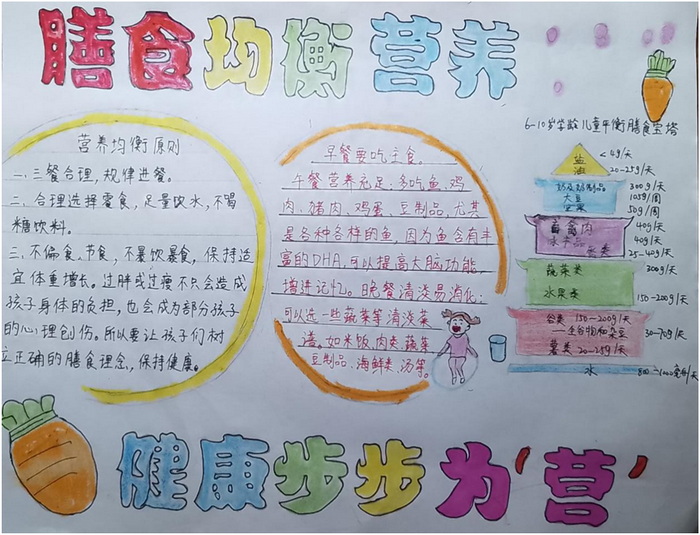 膳食均衡 营养
营养均衡原则
一、三餐合理，规律进餐。
二、合理选择零食，足量饮水，不喝
糖饮料。
三、不偏食、节食，不暴饮暴食，保持适
宜体重增长。过胖或过瘦不只会造成
孩子身体的负担，也会成为部分孩子
的心理创伤。所以要让孩子们树
立正确的膳食理念，保持健康。
早餐要吃主食。
午餐营养充足：多吃鱼、鸡
肉、猪肉、鸡蛋、豆制品，尤其
是各种各样的鱼，因为鱼含有丰
富的DHA，可以提高大脑功能，
增进记忆。晚餐清淡易消化：
可以选一些蔬菜等清淡菜
谱。如米饭、肉类、蔬菜
豆制品、海鲜类、汤等。
6-10岁学龄儿童平衡膳食宝塔
盐 <4g/天
油 20-25g/天
奶及奶制品 300g/天
大豆 105g/周
坚果 50g/周
畜禽肉 40g/天
水产品 40g/天
蛋类 25-40g/天
蔬菜类 300g/天
水果类 150-200g/天
谷类 150-200g/天
—全谷物和杂豆 30-70g/天
薯类 20-25g/天
水 800-1000毫升/天
健康步步为‘营’